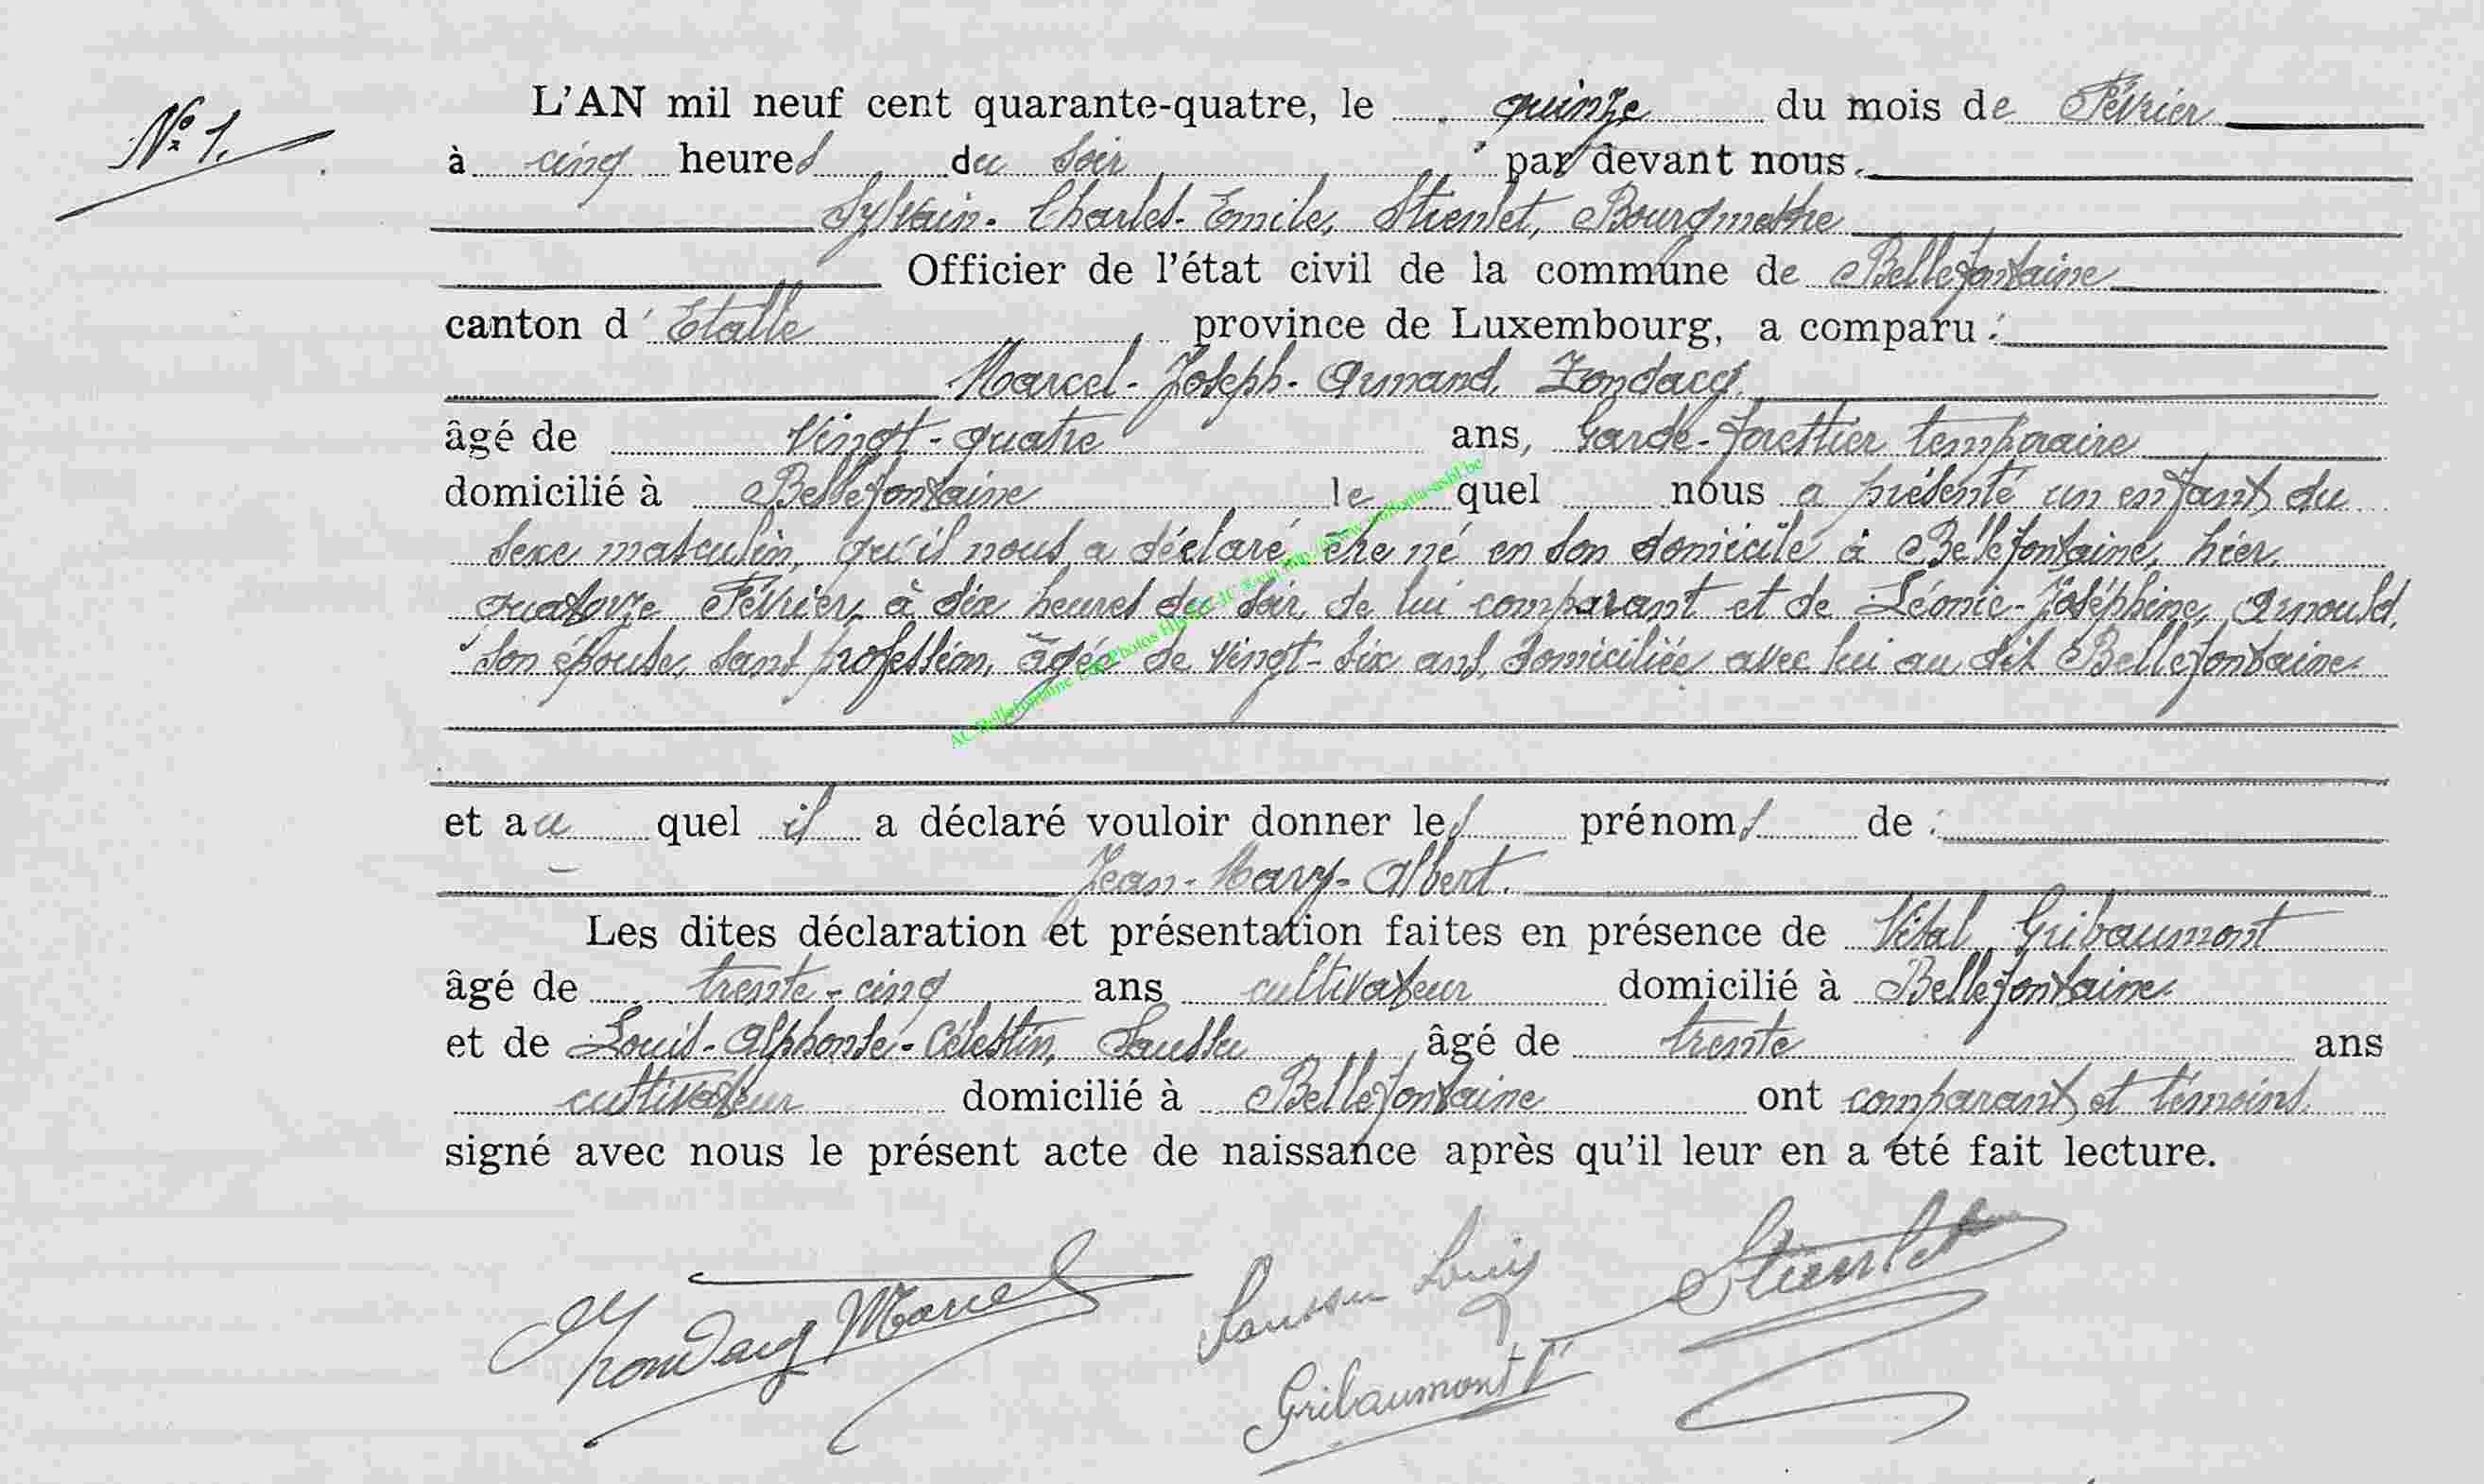 N° 1.
L'AN mil neuf cent quarante-quatre, le quinze du mois de Février
à cinq heures du soir par devant nous
Sylvain-Charles-Emile, Stienlet, Bourgmestre
Officier de l'état civil de la commune de Bellefontaine
canton d'Etalle province de Luxembourg, a comparu :
Marcel-Joseph-Armand, Zondacq,
âgé de vingt-quatre ans, Garde-forestier temporaire
domicilié à Bellefontaine lequel nous a présenté un enfant du
sexe masculin, qu'il nous a déclaré être né en son domicile à Bellefontaine, hier,
quatorze Février, à dix heures du soir, de lui comparant et de Léonie-Joséphine, Arnould,
son épouse, sans profession, âgée de vingt-six ans, domiciliée avec lui au dit Bellefontaine.
et auquel il a déclaré vouloir donner les prénoms de :
Jean-Mary-Albert.
Les dites déclaration et présentation faites en présence de Vital, Gribaumont
âgé de trente-cinq ans cultivateur domicilié à Bellefontaine
et de Louis-Alphonse-Célestin, Saussu âgé de trente ans
cultivateur domicilié à Bellefontaine ont comparant et témoins
signé avec nous le présent acte de naissance après qu'il leur en a été fait lecture.
Zondacq Marcel Saussu Louis Stienlet
Gribaumont V